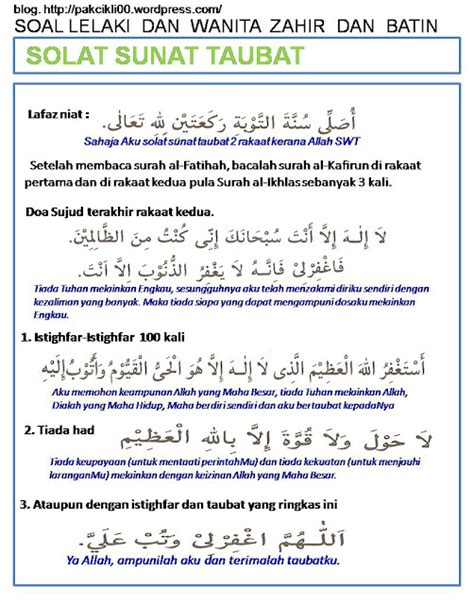 blog. http://pakcikli00.wordpress.com/
SOAL LELAKI DAN WANITA ZAHIR DAN BATIN
SOLAT SUNAT TAUBAT
Lafaz niat : أُصَلِّى سُنَّةَ التَّوْبَةِ رَكَعَتَيْنِ لِلّٰهِ تَعَالَى.
Sahaja Aku solat sunat taubat 2 rakaat kerana Allah SWT
Setelah membaca surah al-Fatihah, bacalah surah al-Kafirun di rakaat
pertama dan di rakaat kedua pula Surah al-Ikhlas sebanyak 3 kali.
Doa Sujud terakhir rakaat kedua.
لَا إِلٰهَ إِلَّا أَنْتَ سُبْحَانَكَ إِنِّى كُنْتُ مِنَ الظَّالِمِيْنَ.
فَاغْفِرْلِىْ فَإِنَّهُ لَا يَغْفِرُ الذُّنُوْبَ إِلَّا اَنْتَ.
Tiada Tuhan melainkan Engkau, sesungguhnya aku telah menzalimi diriku sendiri dengan
kezaliman yang banyak. Maka tiada siapa yang dapat mengampuni dosaku melainkan
Engkau.
1. Istighfar-Istighfar 100 kali
أَسْتَغْفِرُ اللهَ الْعَظِيْمَ الَّذِى لَا إِلٰهَ إِلَّا هُوَ الْحَيُّ الْقَيُّوْمُ وَأَتُوْبُ إِلَيْهِ
Aku memohon keampunan Allah yang Maha Besar, tiada Tuhan melainkan Allah,
Dialah yang Maha Hidup, Maha berdiri sendiri dan aku bertaubat kepadaNya
2. Tiada had لَا حَوْلَ وَلَا قُوَّةَ إِلَّا بِاللهِ الْعَظِيْمِ
Tiada keupayaan (untuk mentaati perintahMu) dan tiada kekuatan (untuk menjauhi
laranganMu) melainkan dengan keizinan Allah yang Maha Besar.
3. Ataupun dengan istighfar dan taubat yang ringkas ini
اَللّٰهُمَّ اغْفِرْلِىْ وَتُبْ عَلَيَّ.
Ya Allah, ampunilah aku dan terimalah taubatku.